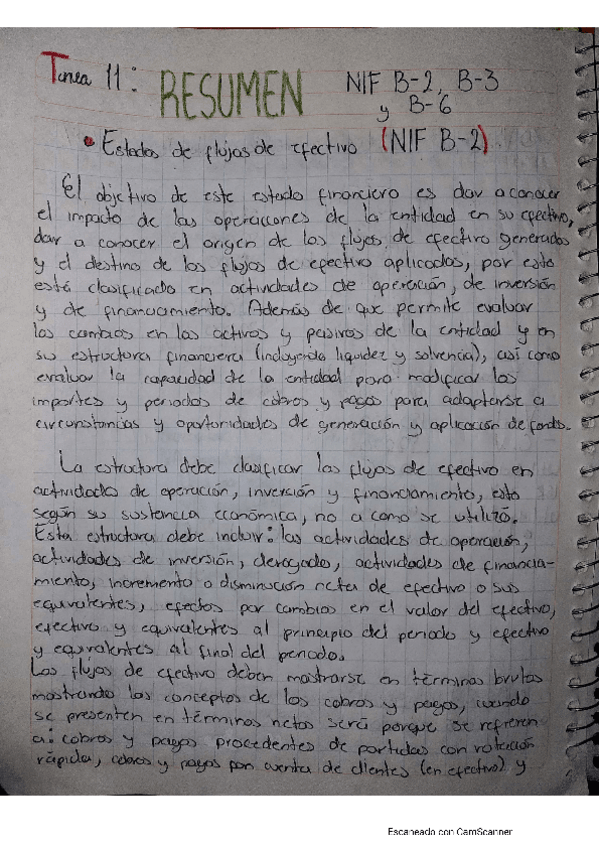 Tarea 11: RESUMEN NIF B-2, B-3
y B-6
• Estados de flujos de efectivo (NIF B-2)
El objetivo de este estado financiero es dar a conocer
el impacto de las operaciones de la entidad en su efectivo,
dar a conocer el origen de los flujos de efectivo generados
y el destino de los flujos de efectivo aplicados, por esto
está clasificado en actividades de operación, de inversión
y de financiamiento. Además de que permite evaluar
los cambios en los activos y pasivos de la entidad y en
su estructura financiera (incluyendo liquidez y solvencia), así como
evaluar la capacidad de la entidad para modificar los
importes y periodos de cobros y pagos para adaptarse a
circunstancias y oportunidades de generación y aplicación de fondos.
La estructura debe clasificar los flujos de efectivo en
actividades de operación, inversión y financiamiento, esto
según su sustancia económica, no a como se utilizó.
Esta estructura debe incluir: las actividades de operación,
actividades de inversión, derogado, actividades de financia-
miento, incremento o disminución neta de efectivo o sus
equivalentes, efectos por cambios en el valor del efectivo,
efectivo y equivalentes al principio del periodo y efectivo
y equivalentes al final del periodo.
Los flujos de efectivo deben mostrarse en términos brutos
mostrando los conceptos de los cobros y pagos, cuando
se presenten en términos netos será porque se refieren
a: cobros y pagos procedentes de partidas con rotación
rápida, cobros y pagos por cuenta de clientes (en efectivo) y
Escaneado con CamScanner